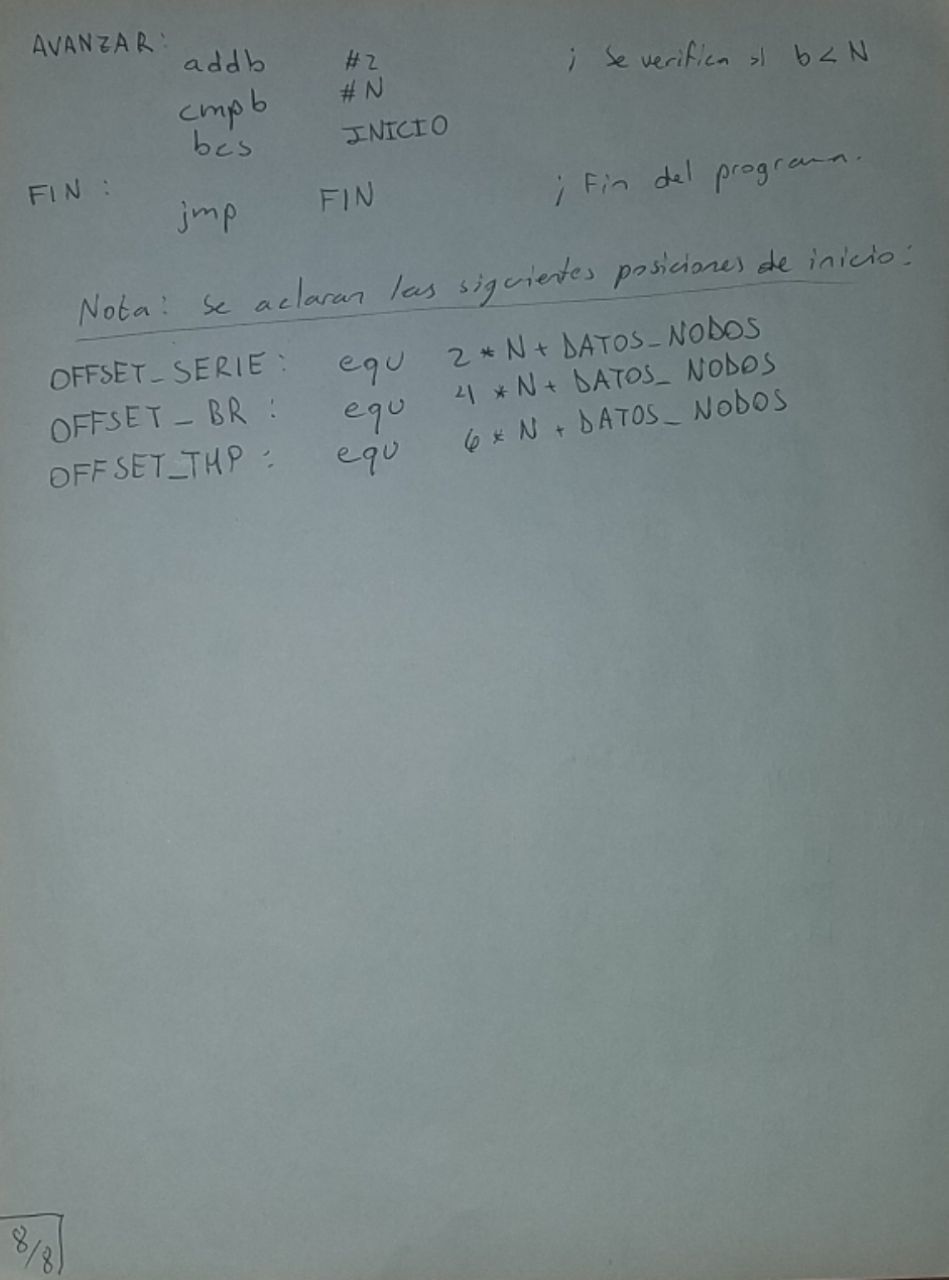 AVANZAR:
addb #2 ; Se verifica si b < N
cmpb #N
bcs INICIO
FIN :
jmp FIN ; Fin del programa.
Nota: Se aclaran las siguientes posiciones de inicio:
OFFSET_SERIE : equ 2 * N + DATOS_NODOS
OFFSET_BR : equ 4 * N + DATOS_NODOS
OFFSET_TMP : equ 6 * N + DATOS_NODOS
8/8